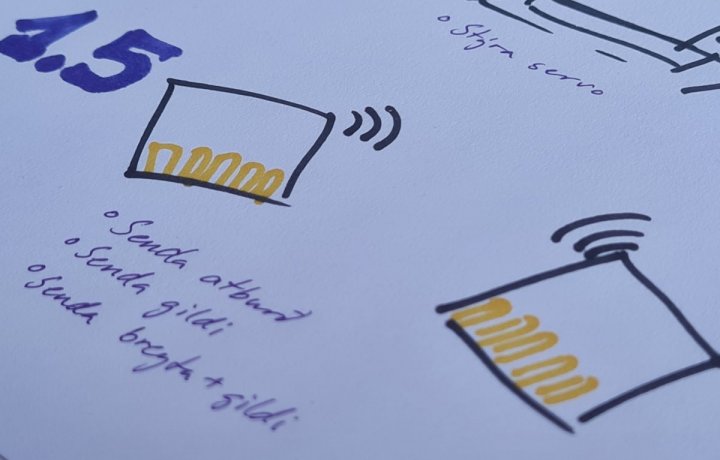 1.5
o Stýra servo
o Senda atburð
o Senda gildi
o Senda breyta + gildi